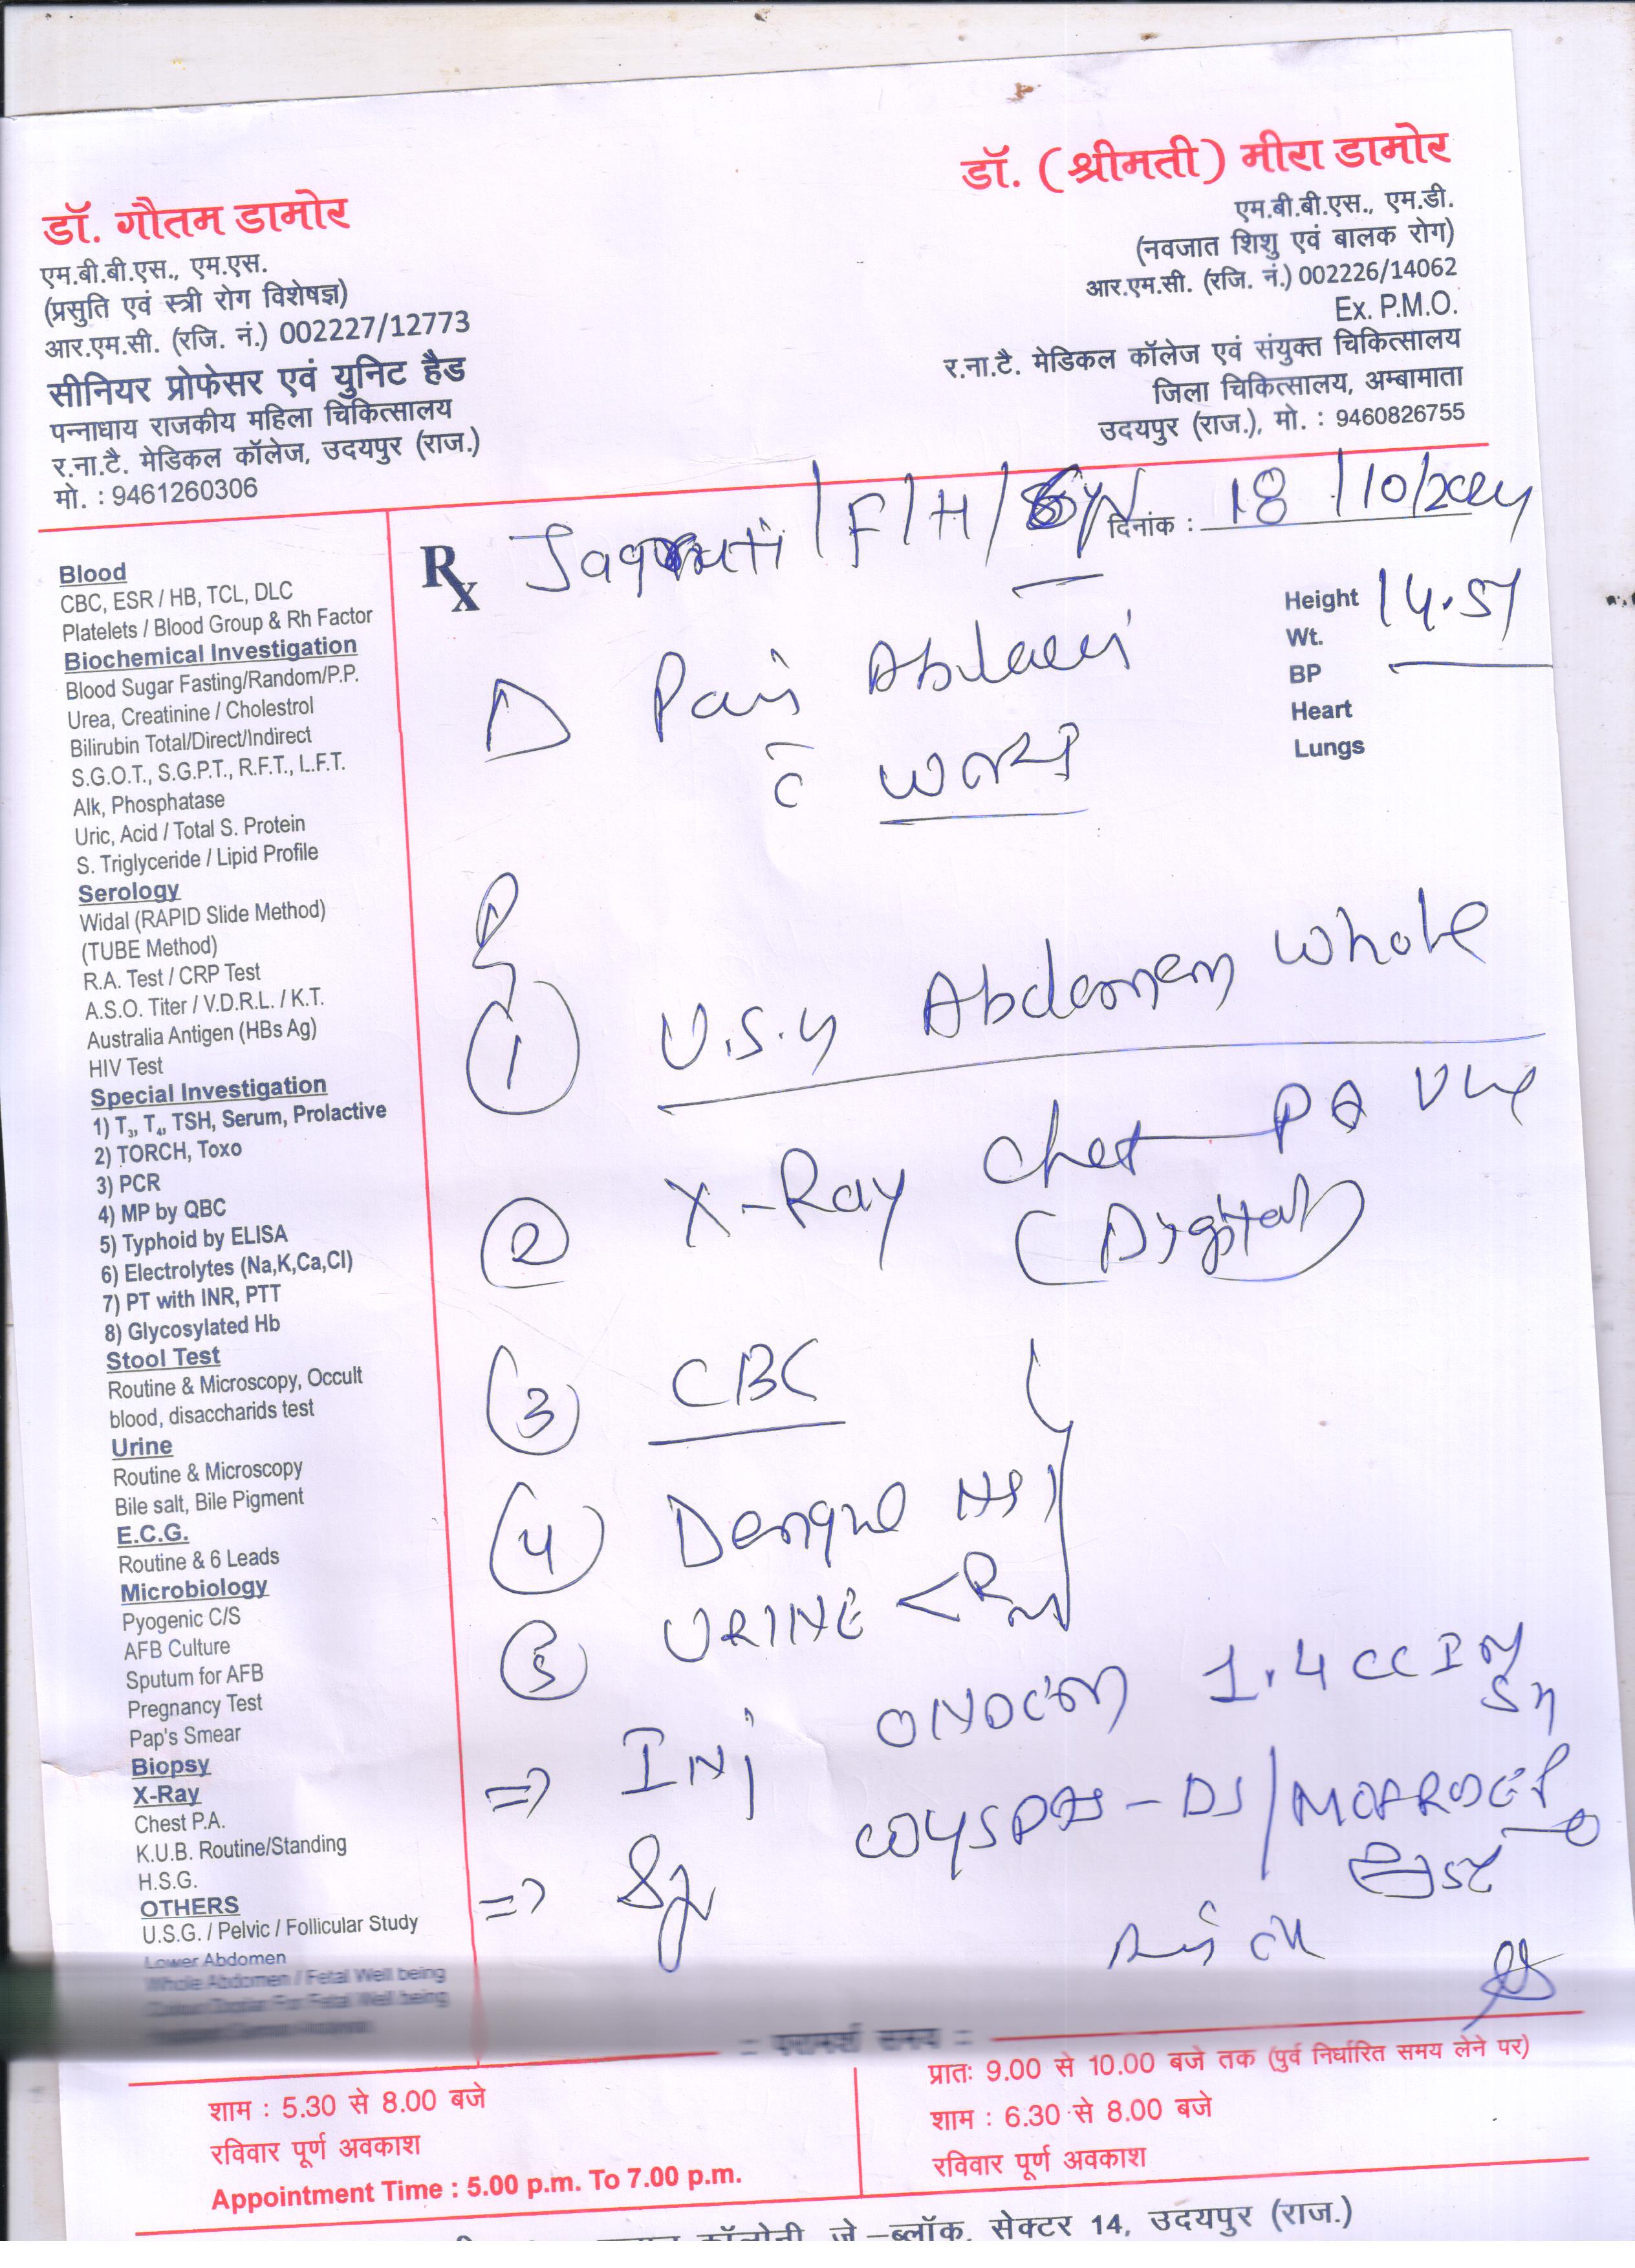 डॉ. गौतम डामोर
एम.बी.बी.एस., एम.एस.
(प्रसुति एवं स्त्री रोग विशेषज्ञ)
आर.एम.सी. (रजि. नं.) 002227/12773
सीनियर प्रोफेसर एवं युनिट हैड
पन्नाधाय राजकीय महिला चिकित्सालय
र.ना.टै. मेडिकल कॉलेज, उदयपुर (राज.)
मो. : 9461260306
डॉ. (श्रीमती) मीरा डामोर
एम.बी.बी.एस., एम.डी.
(नवजात शिशु एवं बालक रोग)
आर.एम.सी. (रजि. नं.) 002226/14062
Ex. P.M.O.
र.ना.टै. मेडिकल कॉलेज एवं संयुक्त चिकित्सालय
जिला चिकित्सालय, अम्बामाता
उदयपुर (राज.), मो. : 9460826755
Blood
CBC, ESR / HB, TCL, DLC
Platelets / Blood Group & Rh Factor
Biochemical Investigation
Blood Sugar Fasting/Random/P.P.
Urea, Creatinine / Cholestrol
Bilirubin Total/Direct/Indirect
S.G.O.T., S.G.P.T., R.F.T., L.F.T.
Alk, Phosphatase
Uric, Acid / Total S. Protein
S. Triglyceride / Lipid Profile
Serology
Widal (RAPID Slide Method)
(TUBE Method)
R.A. Test / CRP Test
A.S.O. Titer / V.D.R.L. / K.T.
Australia Antigen (HBs Ag)
HIV Test
Special Investigation
1) T3, T4, TSH, Serum, Prolactive
2) TORCH, Toxo
3) PCR
4) MP by QBC
5) Typhoid by ELISA
6) Electrolytes (Na,K,Ca,Cl)
7) PT with INR, PTT
8) Glycosylated Hb
Stool Test
Routine & Microscopy, Occult
blood, disaccharids test
Urine
Routine & Microscopy
Bile salt, Bile Pigment
E.C.G.
Routine & 6 Leads
Microbiology
Pyogenic C/S
AFB Culture
Sputum for AFB
Pregnancy Test
Pap's Smear
Biopsy
X-Ray
Chest P.A.
K.U.B. Routine/Standing
H.S.G.
OTHERS
U.S.G. / Pelvic / Follicular Study
Lower Abdomen
Whole Abdomen / Fetal Well being
Rx /F/H/ दिनांक : 18/10/2024
Height 14.5
Wt.
BP
Heart
Lungs
Pain
1 U.S.G Abdomen Whole
2 X-Ray Chest PA
(Digital)
3 CBC
4 Dengue NS1
5 URINE
=> INJ 1.4 CC IM
=> DS/
-: परामर्श समय :-
शाम : 5.30 से 8.00 बजे
रविवार पूर्ण अवकाश
Appointment Time : 5.00 p.m. To 7.00 p.m.
प्रातः 9.00 से 10.00 बजे तक (पुर्व निर्धारित समय लेने पर)
शाम : 6.30 से 8.00 बजे
रविवार पूर्ण अवकाश
कॉलोनी, जे-ब्लॉक, सेक्टर 14, उदयपुर (राज.)